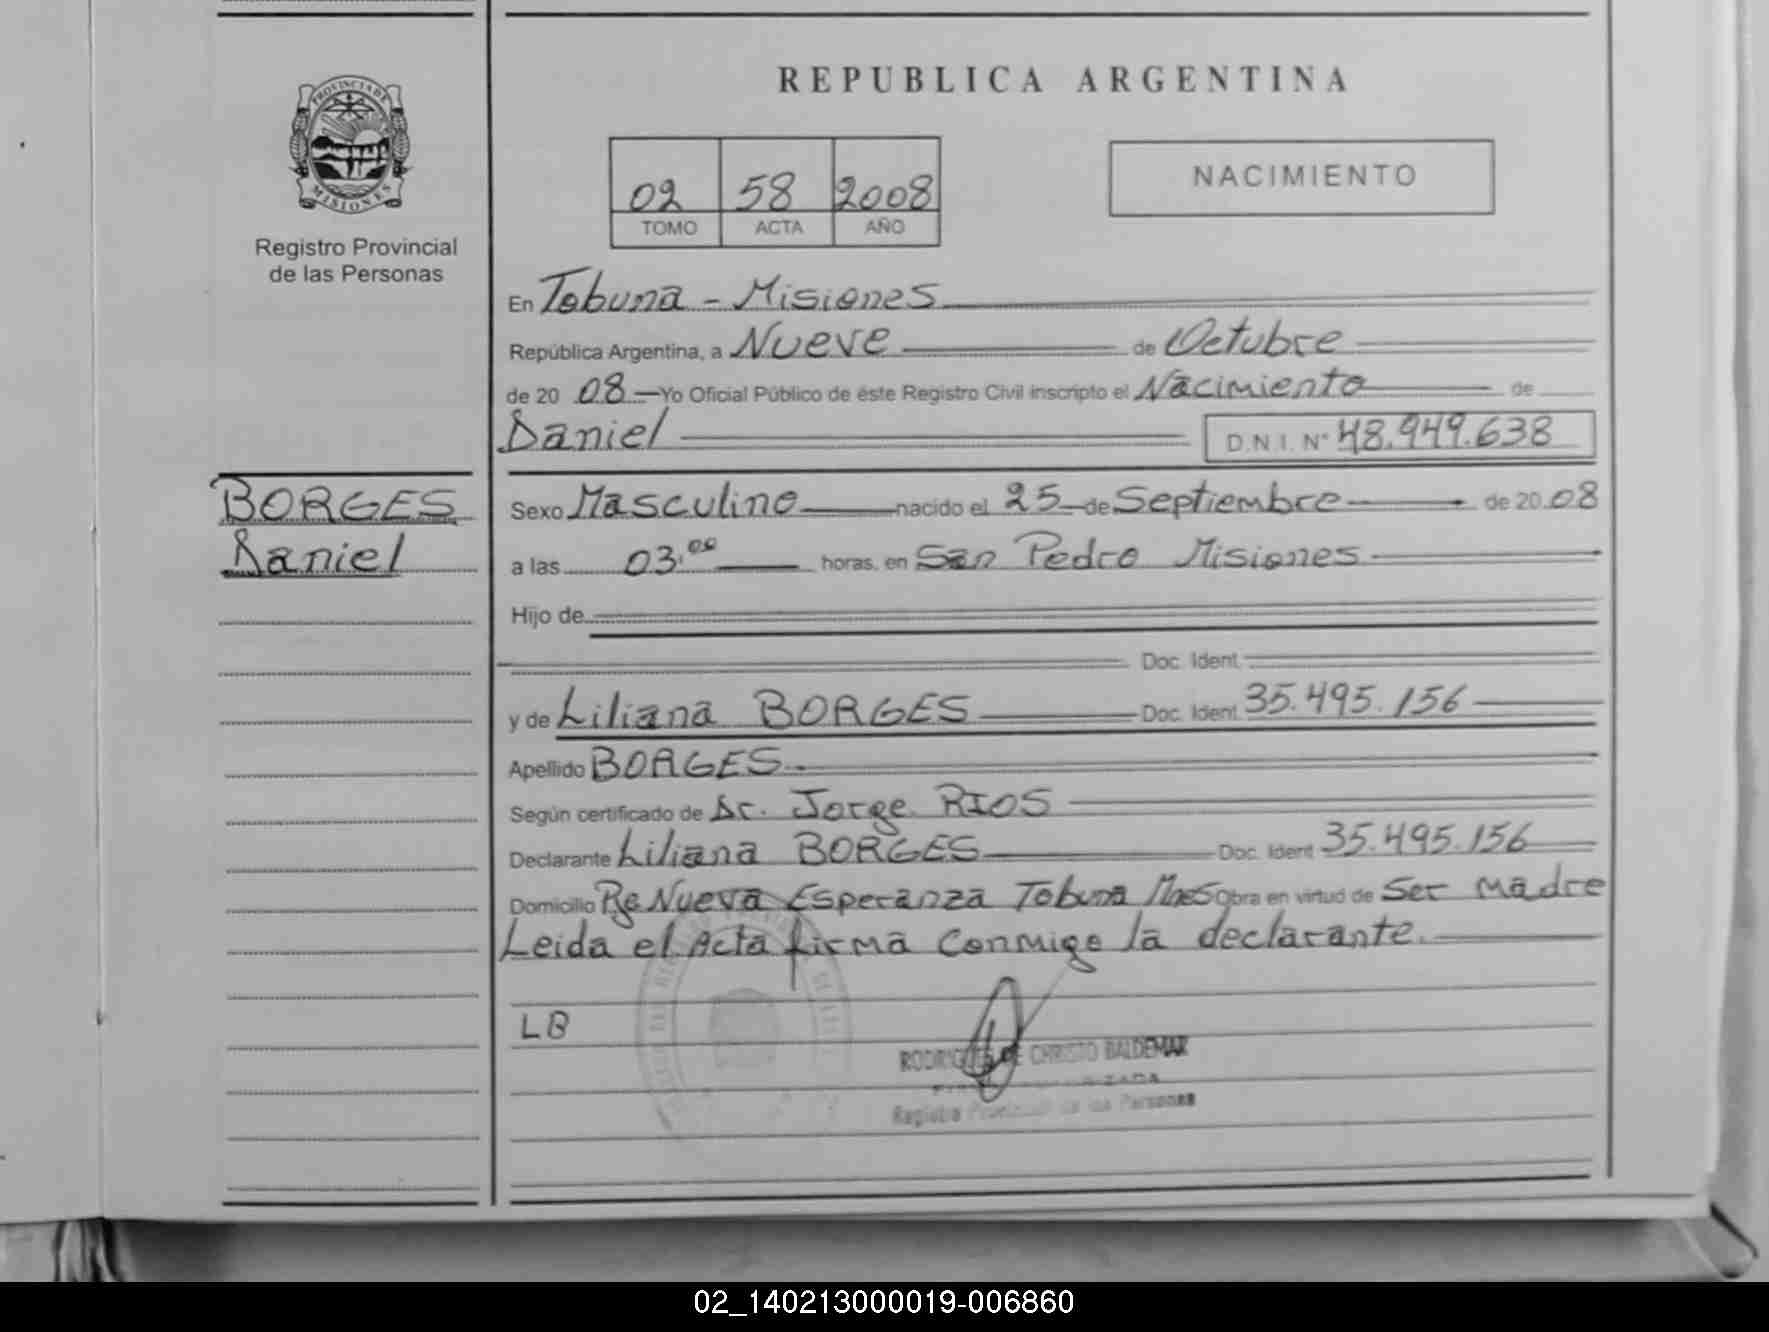 REPUBLICA ARGENTINA
PROVINCIA DE
MISIONES
Registro Provincial
de las Personas
02 58 2008
TOMO ACTA AÑO
NACIMIENTO
En Tobuna - Misiones
República Argentina, a Nueve de Octubre
de 20 08 Yo Oficial Público de éste Registro Civil inscripto el Nacimiento de
Daniel D.N.I. N° 48.949.638
BORGES
Daniel
Sexo Masculino nacido el 25 de Septiembre de 20 08
a las 03.00 horas. en San Pedro Misiones
Hijo de
Doc. Ident.
y de Liliana BORGES Doc. Ident. 35.495.156
Apellido BORGES.
Según certificado de Dr. Jorge RIOS
Declarante Liliana BORGES Doc. Ident. 35.495.156
Domicilio Nueva Esperanza Tobuna Mnes Obra en virtud de Ser madre
Leida el Acta firma conmigo la declarante.
LB
RODRIGUES DE CHRISTO BALDEMAR
Registro Provincial de las Personas
02_140213000019-006860